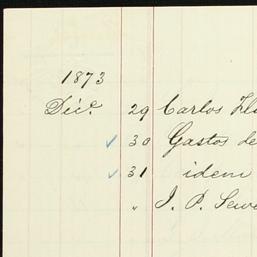 1873
Dic.e 29 Carlos
✓ 30 Gastos de
✓ 31 idem
" J. P.